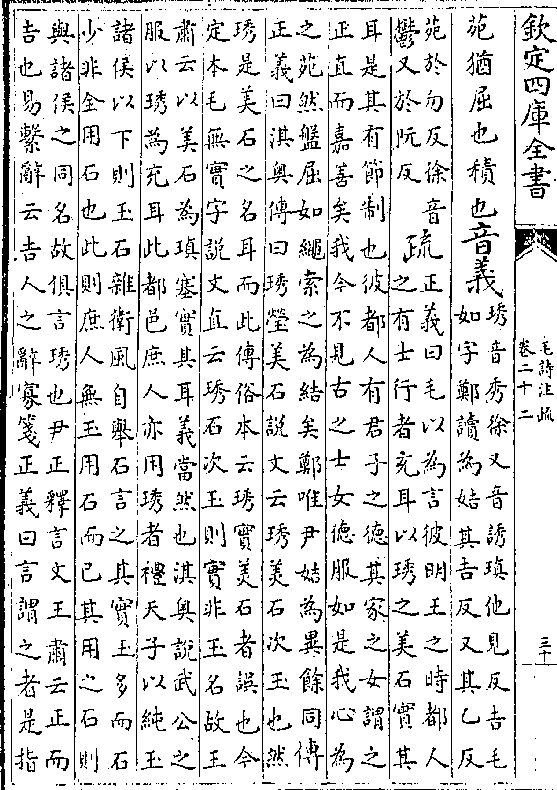 欽定四庫全書
毛詩注疏
卷二十二
三十
苑猶屈也積也音義
琇音秀徐又音誘瑱他見反吉毛
如字鄭讀為姞其吉反又其乙反
苑於勿反徐音
鬱又於阮反
疏
正義曰毛以為言彼明王之時都人
之有士行者充耳以琇之美石實其
耳是其有節制也彼都人有君子之德其家之女謂之
正直而嘉善矣我今不見古之士女德服如是我心為
之苑然盤屈如繩索之為結矣鄭唯尹姞為異餘同傳
正義曰淇奥傳曰琇瑩美石説文云琇美石次玉也然
琇是美石之名耳而此傳俗本云琇實美石者誤也今
定本毛無實字説文直云琇石次玉則實非玉名故王
肅云以美石為瑱塞實其耳義當然也淇奥説武公之
服以琇為充耳此都邑庶人亦用琇者禮天子以純玉
諸侯以下則玉石雜衛風自舉石言之其實玉多而石
少非全用石也此則庶人無玉用石而已其用之石則
與諸侯之同名故俱言琇也尹正釋言文王肅云正而
吉也易繫辭云吉人之辭寡箋正義曰言謂之者是指